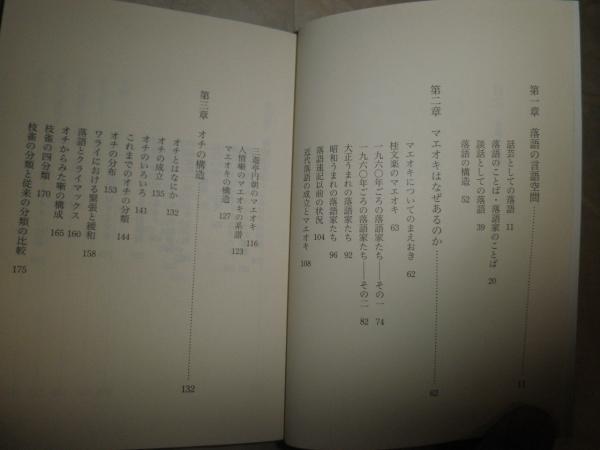 第一章　落語の言語空間…………11
話芸としての落語　11
落語のことば・落語家のことば　20
談話としての落語　39
落語の構造　52
第二章　マエオキはなぜあるのか…………62
マエオキについてのまえおき　62
桂文楽のマエオキ　63
一九六〇年ごろの落語家たち――その一　74
一九六〇年ごろの落語家たち――その二　82
大正うまれの落語家たち　92
昭和うまれの落語家たち　96
落語速記以前の状況　104
近代落語の成立とマエオキ　108
三遊亭円朝のマエオキ　116
人情噺のマエオキの系譜　123
マエオキの構造　127
第三章　オチの構造…………132
オチとはなにか　132
オチの成立　135
オチのいろいろ　141
これまでのオチの分類　144
オチの分布　153
ワライにおける緊張と緩和　158
落語とクライマックス　160
オチからみた噺の構成　165
枝雀の四分類　170
枝雀の分類と従来の分類の比較　175